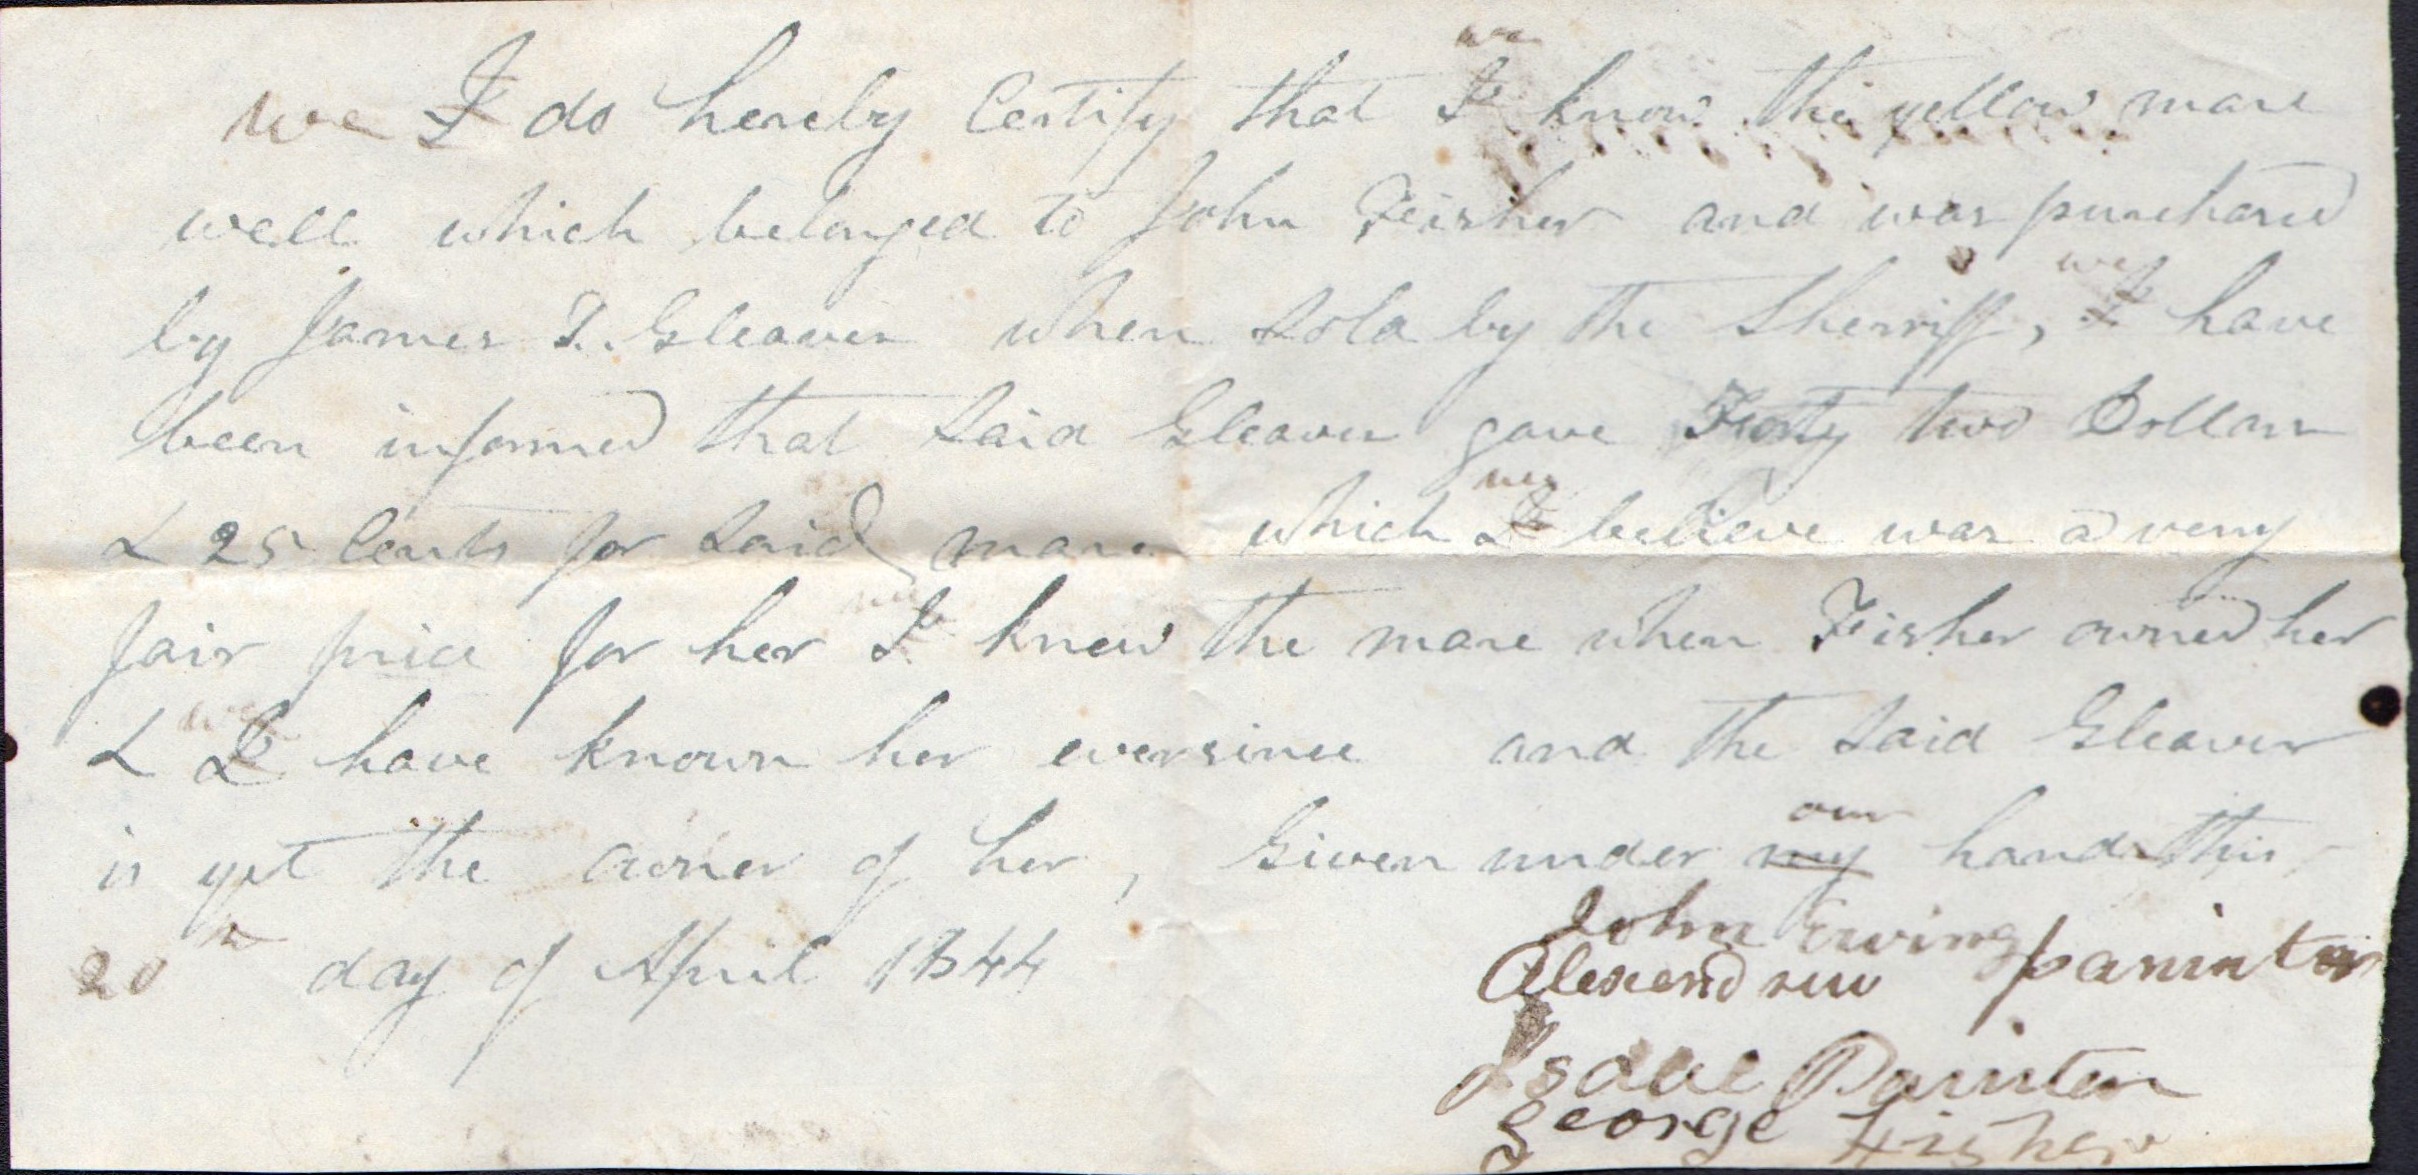 we I do hereby Certify that we I know the yellow mare
well which belonged to John Feisher and was purchased
by James T. Gleaver when Sold by the Sherriff, we I have
been informed that Said Gleaver gave Forty two Dollars
& 25 Cents for Said mare which we I believe was a verry
fair price for her we I knew the mare when Fisher owned her
& we I have known her eversince and the Said Gleaver
is yet the owner of her, Given under our my hands this
20th day of April 1844
John Ewing
Alexendrew paninter
Isaac Painter
george Fisher